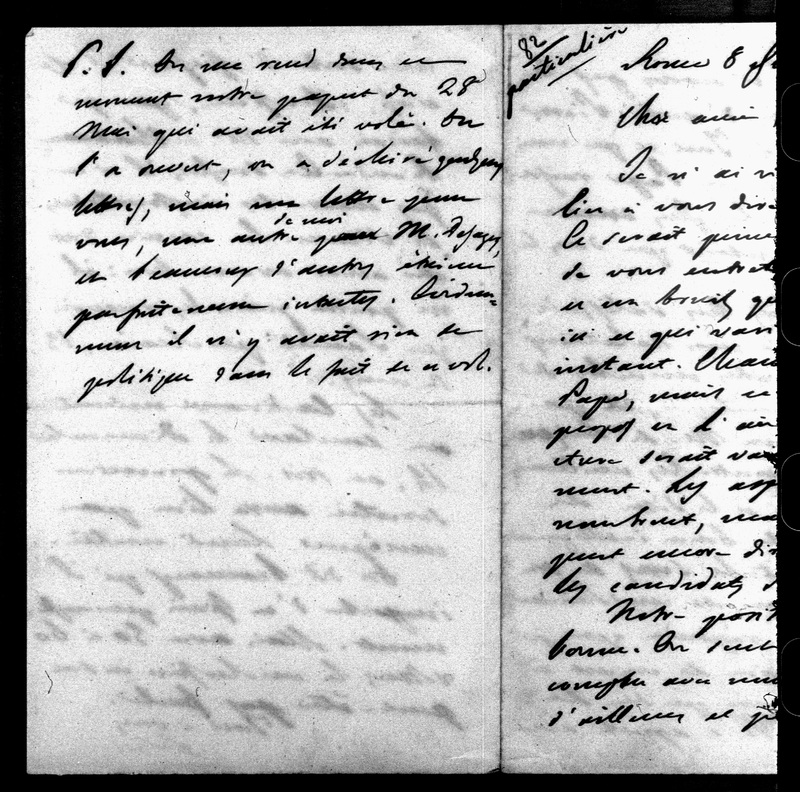 P. S. On me rend dans ce
moment votre paquet du 28
Mai qui avait été volé. On
l'a ouvert, on a déchiré quelques
lettres, mais une lettre pour
vous, une autre de moi pour M. Desages,
et beaucoup d'autres étaient
parfaitement intactes. Évidem-
ment il n'y avait rien de
politique dans le fait de ce vol.
82
particulière
Rome 8
Cher ami
Je n'ai ri
lieu à vous dire
Ce serait
de vous
et un bruit
ici et qui vari
instant.
Pape, mais ce
propos en l'air
ture serait vai
ment. Les asp
nombreux,
peut encore di
les candidats
Notre posit
bonne. On
compter avec
d'ailleurs et